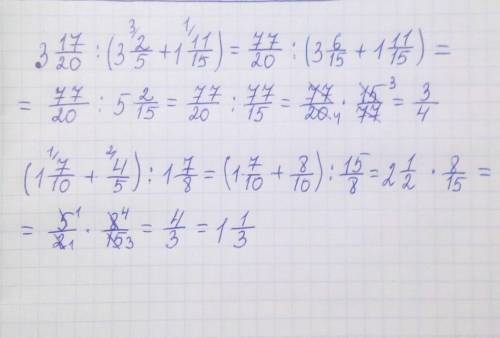 3 17/20 : (3 2/5 + 1 11/15) = 77/20 : (3 6/15 + 1 11/15) =
= 77/20 : 5 2/15 = 77/20 : 77/15 = 77/20 4 · 15 3/77 = 3/4
(1 7/10 + 4/5) : 1 7/8 = (1 7/10 + 8/10) : 15/8 = 2 1/2 · 8/15 =
= 5 1/2 1 · 8 4/15 3 = 4/3 = 1 1/3